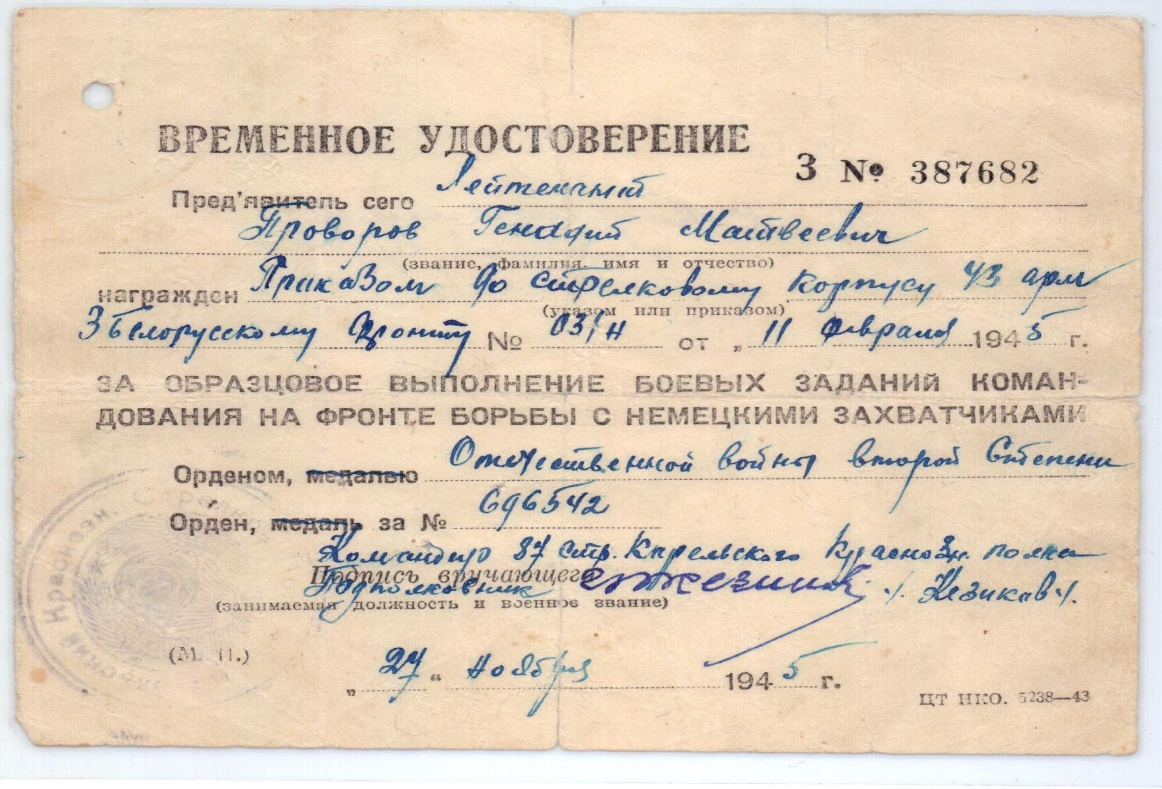 ВРЕМЕННОЕ УДОСТОВЕРЕНИЕ
З № 387682
Пред'явитель сего Лейтенант
Проворов Генадий Матвеевич
(звание, фамилия, имя и отчество)
награжден Приказом по стрелковому корпусу 43 арм
(указом или приказом)
3 Белорусскому фронту № 03/Н от „ 11 февраля 1945 г.
ЗА ОБРАЗЦОВОЕ ВЫПОЛНЕНИЕ БОЕВЫХ ЗАДАНИЙ КОМАН-
ДОВАНИЯ НА ФРОНТЕ БОРЬБЫ С НЕМЕЦКИМИ ЗАХВАТЧИКАМИ
Орденом, медалью Отечественной войны второй Степени
Орден, медаль за № 696542
Командир 87 стр. Карельского Краснозн. полка
Подпись вручающего
Подполковник
(занимаемая должность и военное звание)
(М. П.)
„ 27 “ ноября 1945 г.
ЦТ НКО. 5238—43